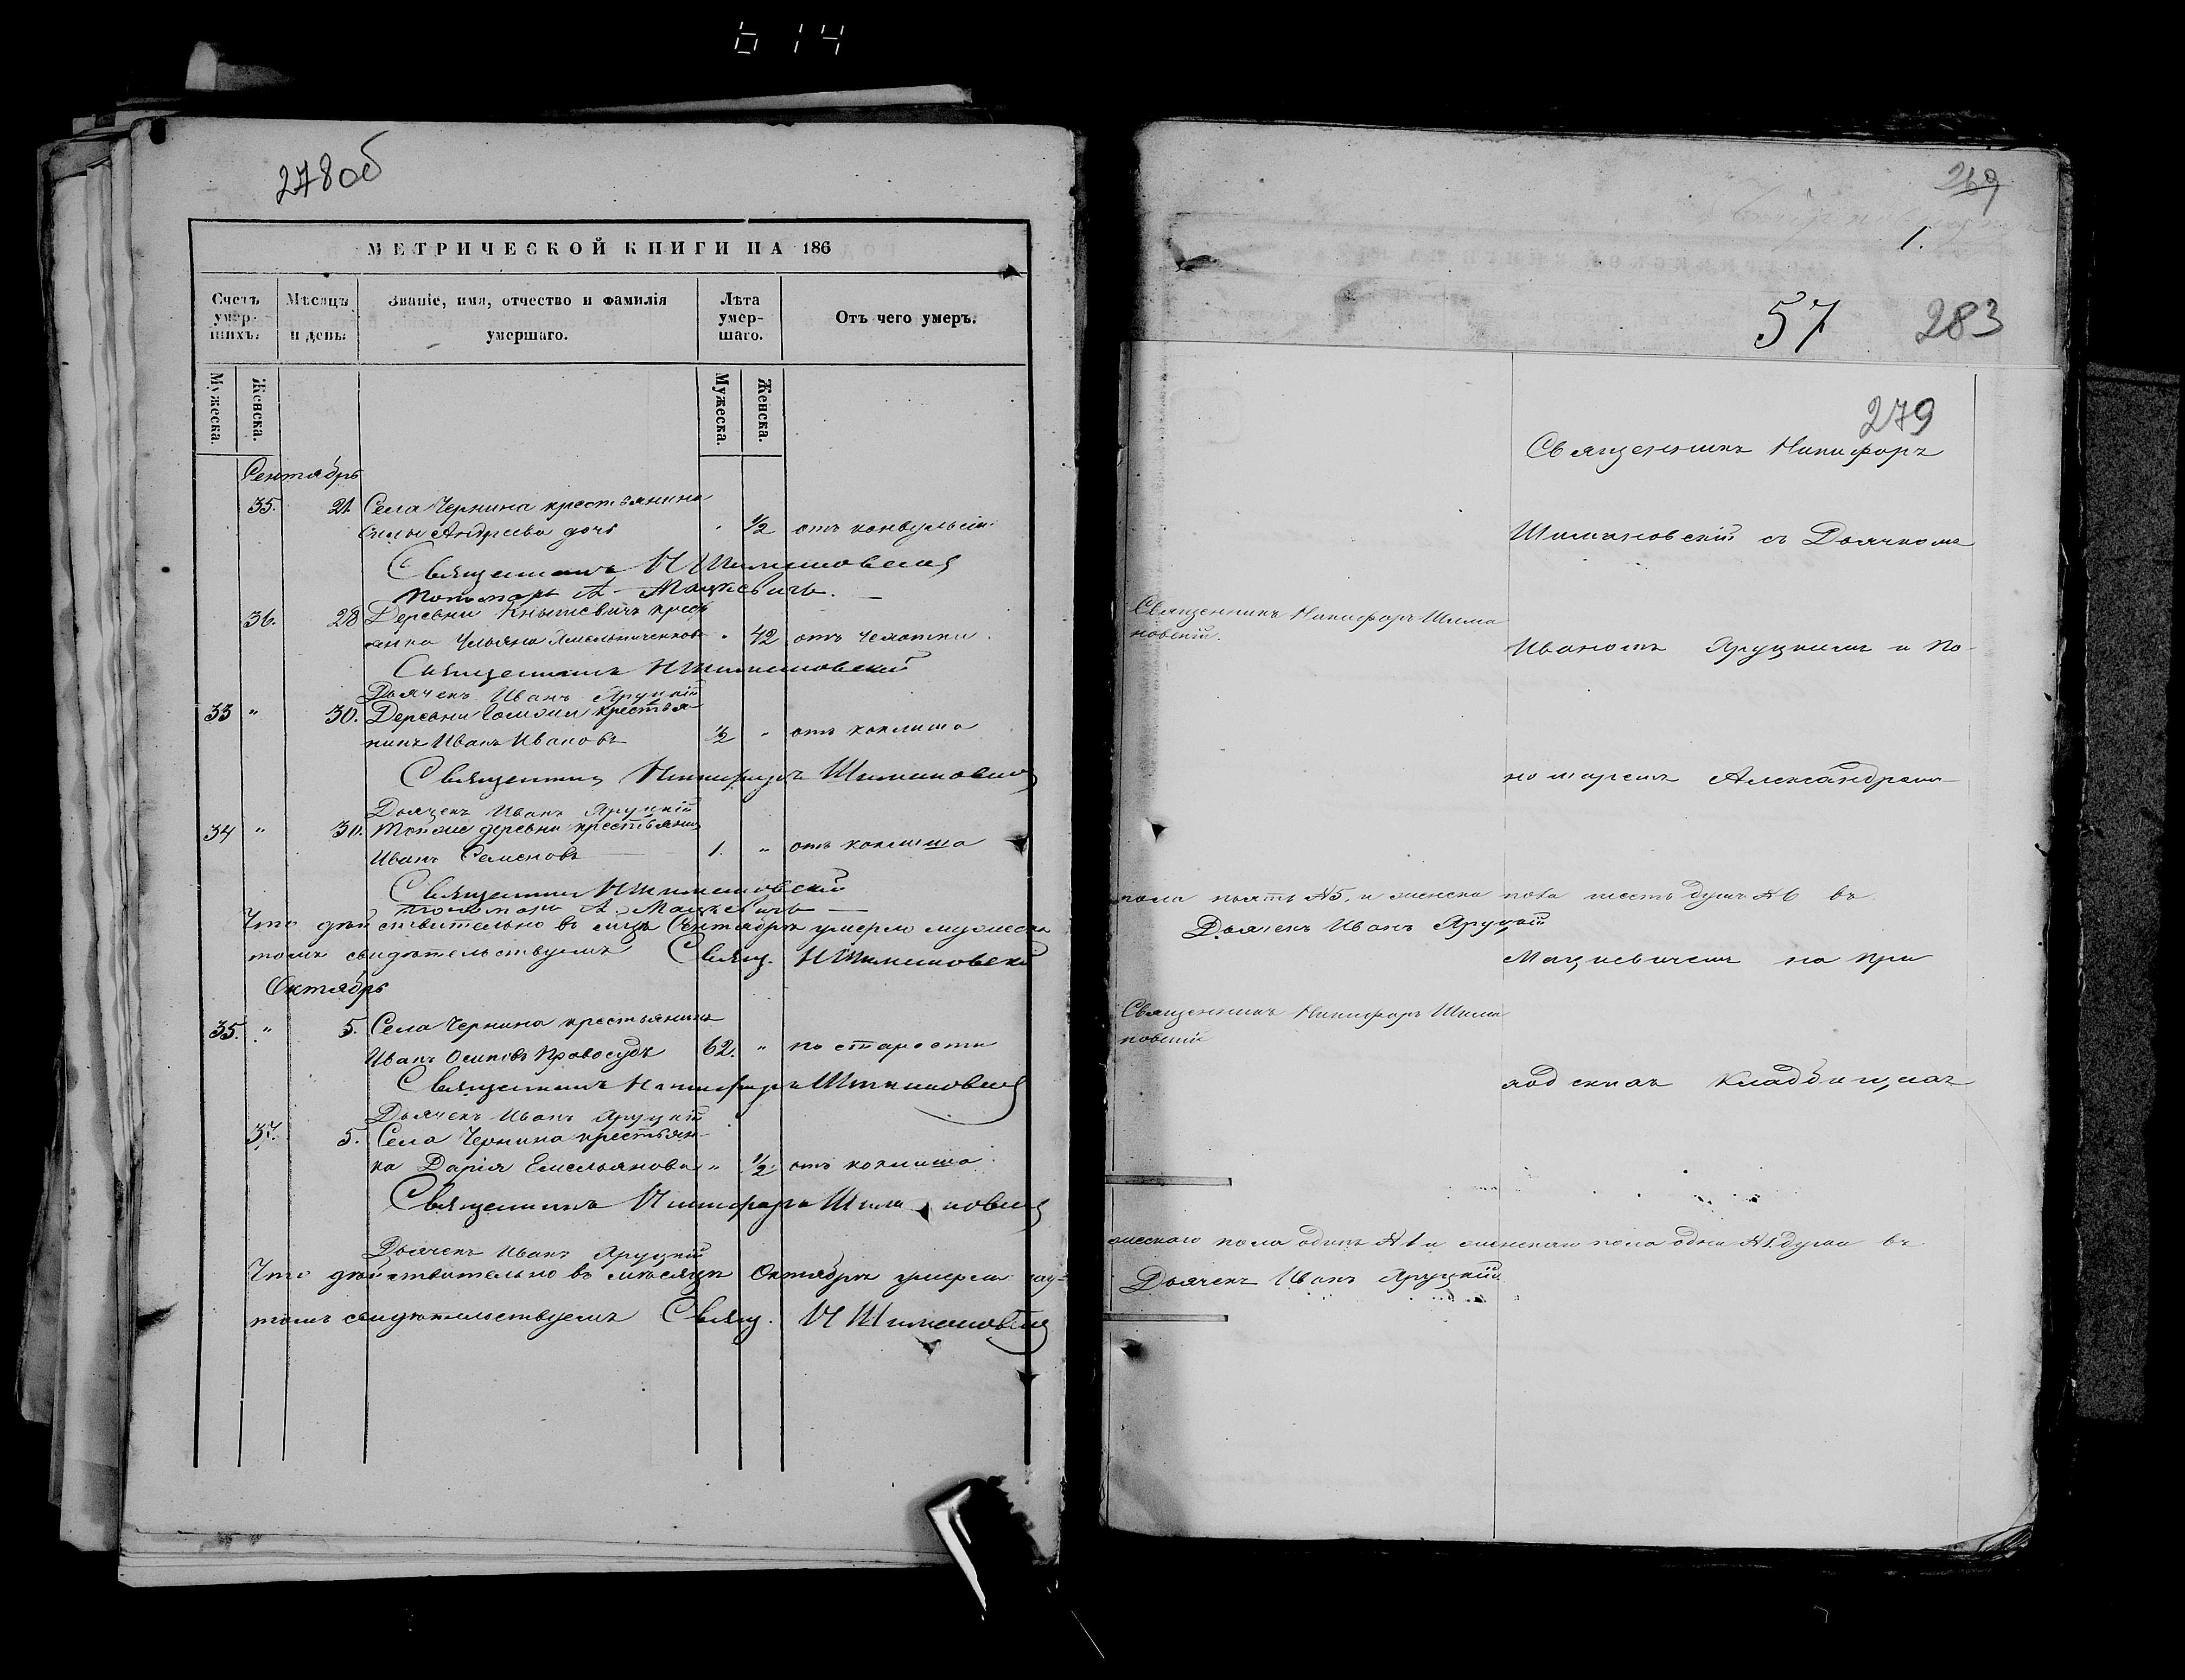 614
278об
МЕТРИЧЕСКОЙ КНИГИ НА 186
Счетъ умер-шихъ.
Мѣсяцъ и день.
Званіе, имя, отчество и фамилія умершаго.
Лѣта умер-шаго.
Отъ чего умеръ.
Мужеска.
Женска.
Мужеска.
Женска.
Сентябрь
35. 21. Села Чернина крестьянина
Андреева дочь " 1/2 отъ конвульсіи
Священникъ Н Шимановскій
Пономарь А Мацкевичъ.
36. 28 Деревни крест
янка Ульяна " 42 отъ чехотки.
Священникъ Н Шимановскій
Дьячекъ Иванъ Яруцкій
33 " 30. Деревни крестья-
нинъ Иванъ Ивановъ 1/2 " отъ коклиша
Священникъ Никифоръ Шимановскій
Дьячекъ Иванъ Яруцкій
34 " 30. Тойже деревни крестьянинъ
Иванъ Семеновъ 1. " отъ коклиша
Священникъ Н Шимановскій
Пономарь А. Мацкевичъ
Что дѣйствительно въ мцѣ Сентябрѣ умерло мужеска
томъ свидѣтельствуемъ Свящ. Н Шимановскій
Октябрь
35. " 5. Села Чернина крестьянинъ
Иванъ Осиповъ Правосудъ 62. " по старости
Священникъ Никифоръ Шимановскій
Дьячекъ Иванъ Яруцкій
37. 5. Села Чернина крестьян-
ка Дарія Емельянова " 1/2 отъ коклиша
Священникъ Никифоръ Шимановскій
Дьячекъ Иванъ Яруцкій
Что дѣйствительно въ мѣсяцѣ Октябрѣ умерли му-
томъ свидѣтельствуемъ Свящ. Н Шимановскій
269
1.
57 283
279
Священникъ Никифоръ
Шимановскій съ Дьячкомъ
Священникъ Никифоръ Шима
новскій.
Иваномъ Яруцкимъ и По-
номаремъ Александромъ
пола пьять №5. и женска пола шесть душъ №6 въ
Дьячекъ Иванъ Яруцкій
Мацкевичемъ на при
Священникъ Никифоръ Шима
новскій
ходскихъ кладбищахъ
жескаго пола одинъ №1 и женскаго пола одна №1 душа въ
Дьячекъ Иванъ Яруцкій